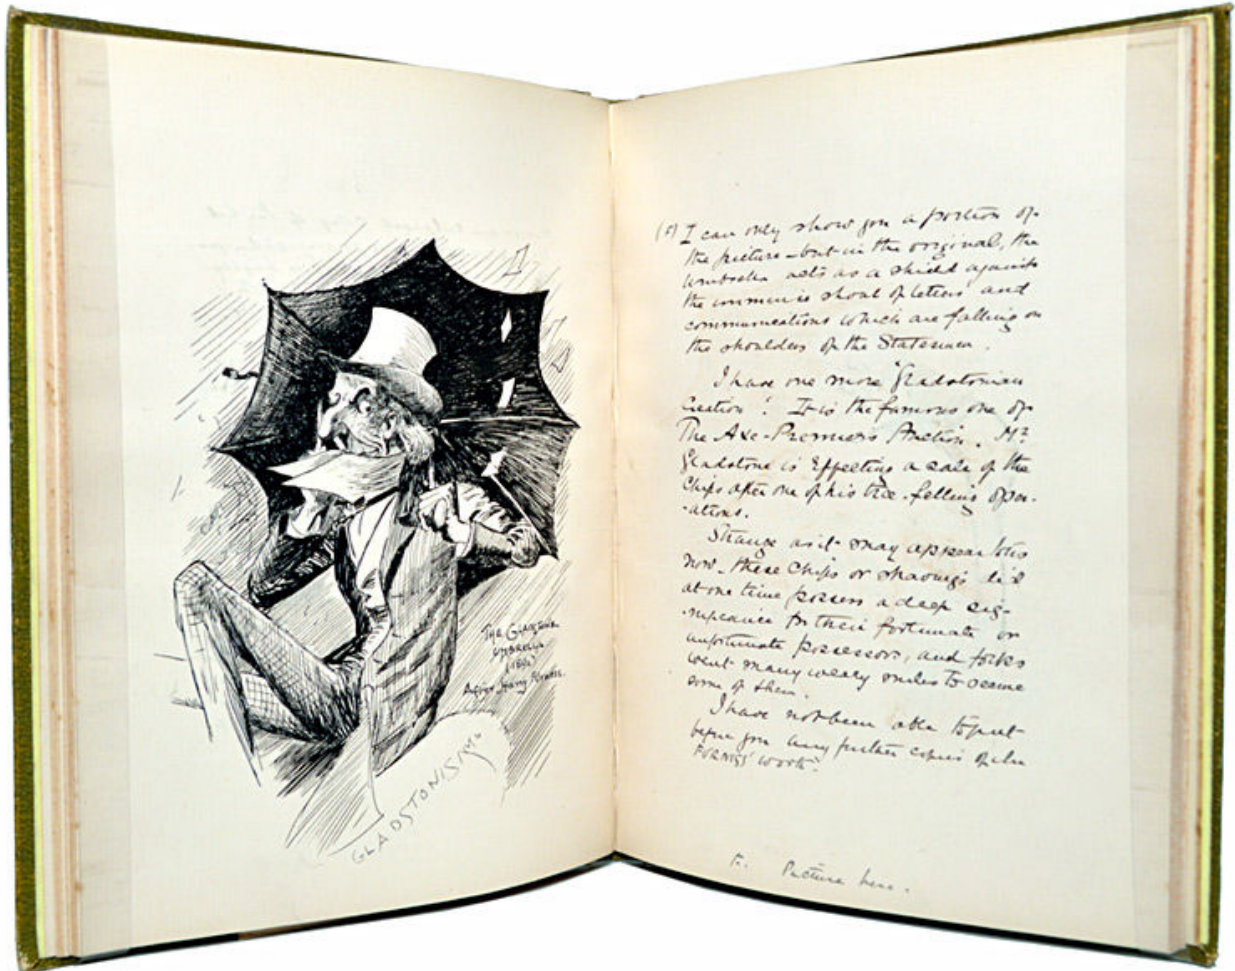 The Gladstone
Umbrella
After Harry Furniss.
GLADSTONISM
(5) I can only show you a portion of
the picture - but in the original, the
umbrella acts as a shield against
the immense shoal of letters and
communications which are falling on
the shoulders of the Statesman.
I have one more "Gladstonian
Creation". It is the famous one of
The Axe-Premier's Auction. Mr
Gladstone is effecting a sale of the
Chips after one of his tree-felling oper-
-ations.
Strange as it may appear to us
now, these Chips or shavings did
at one time possess a deep sig-
-nificance for their fortunate or
unfortunate possessors, and folks
went many weary miles to secure
some of them.
I have not been able to put
before you any further copies of
FURNISS' work.
Picture here.